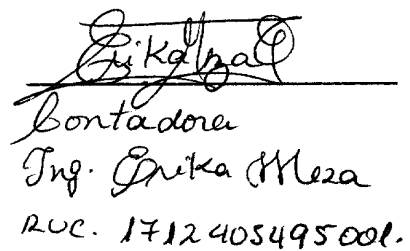 Erika Meza
Contadora
Ing. Erika Meza
RUC. 1712405495001.